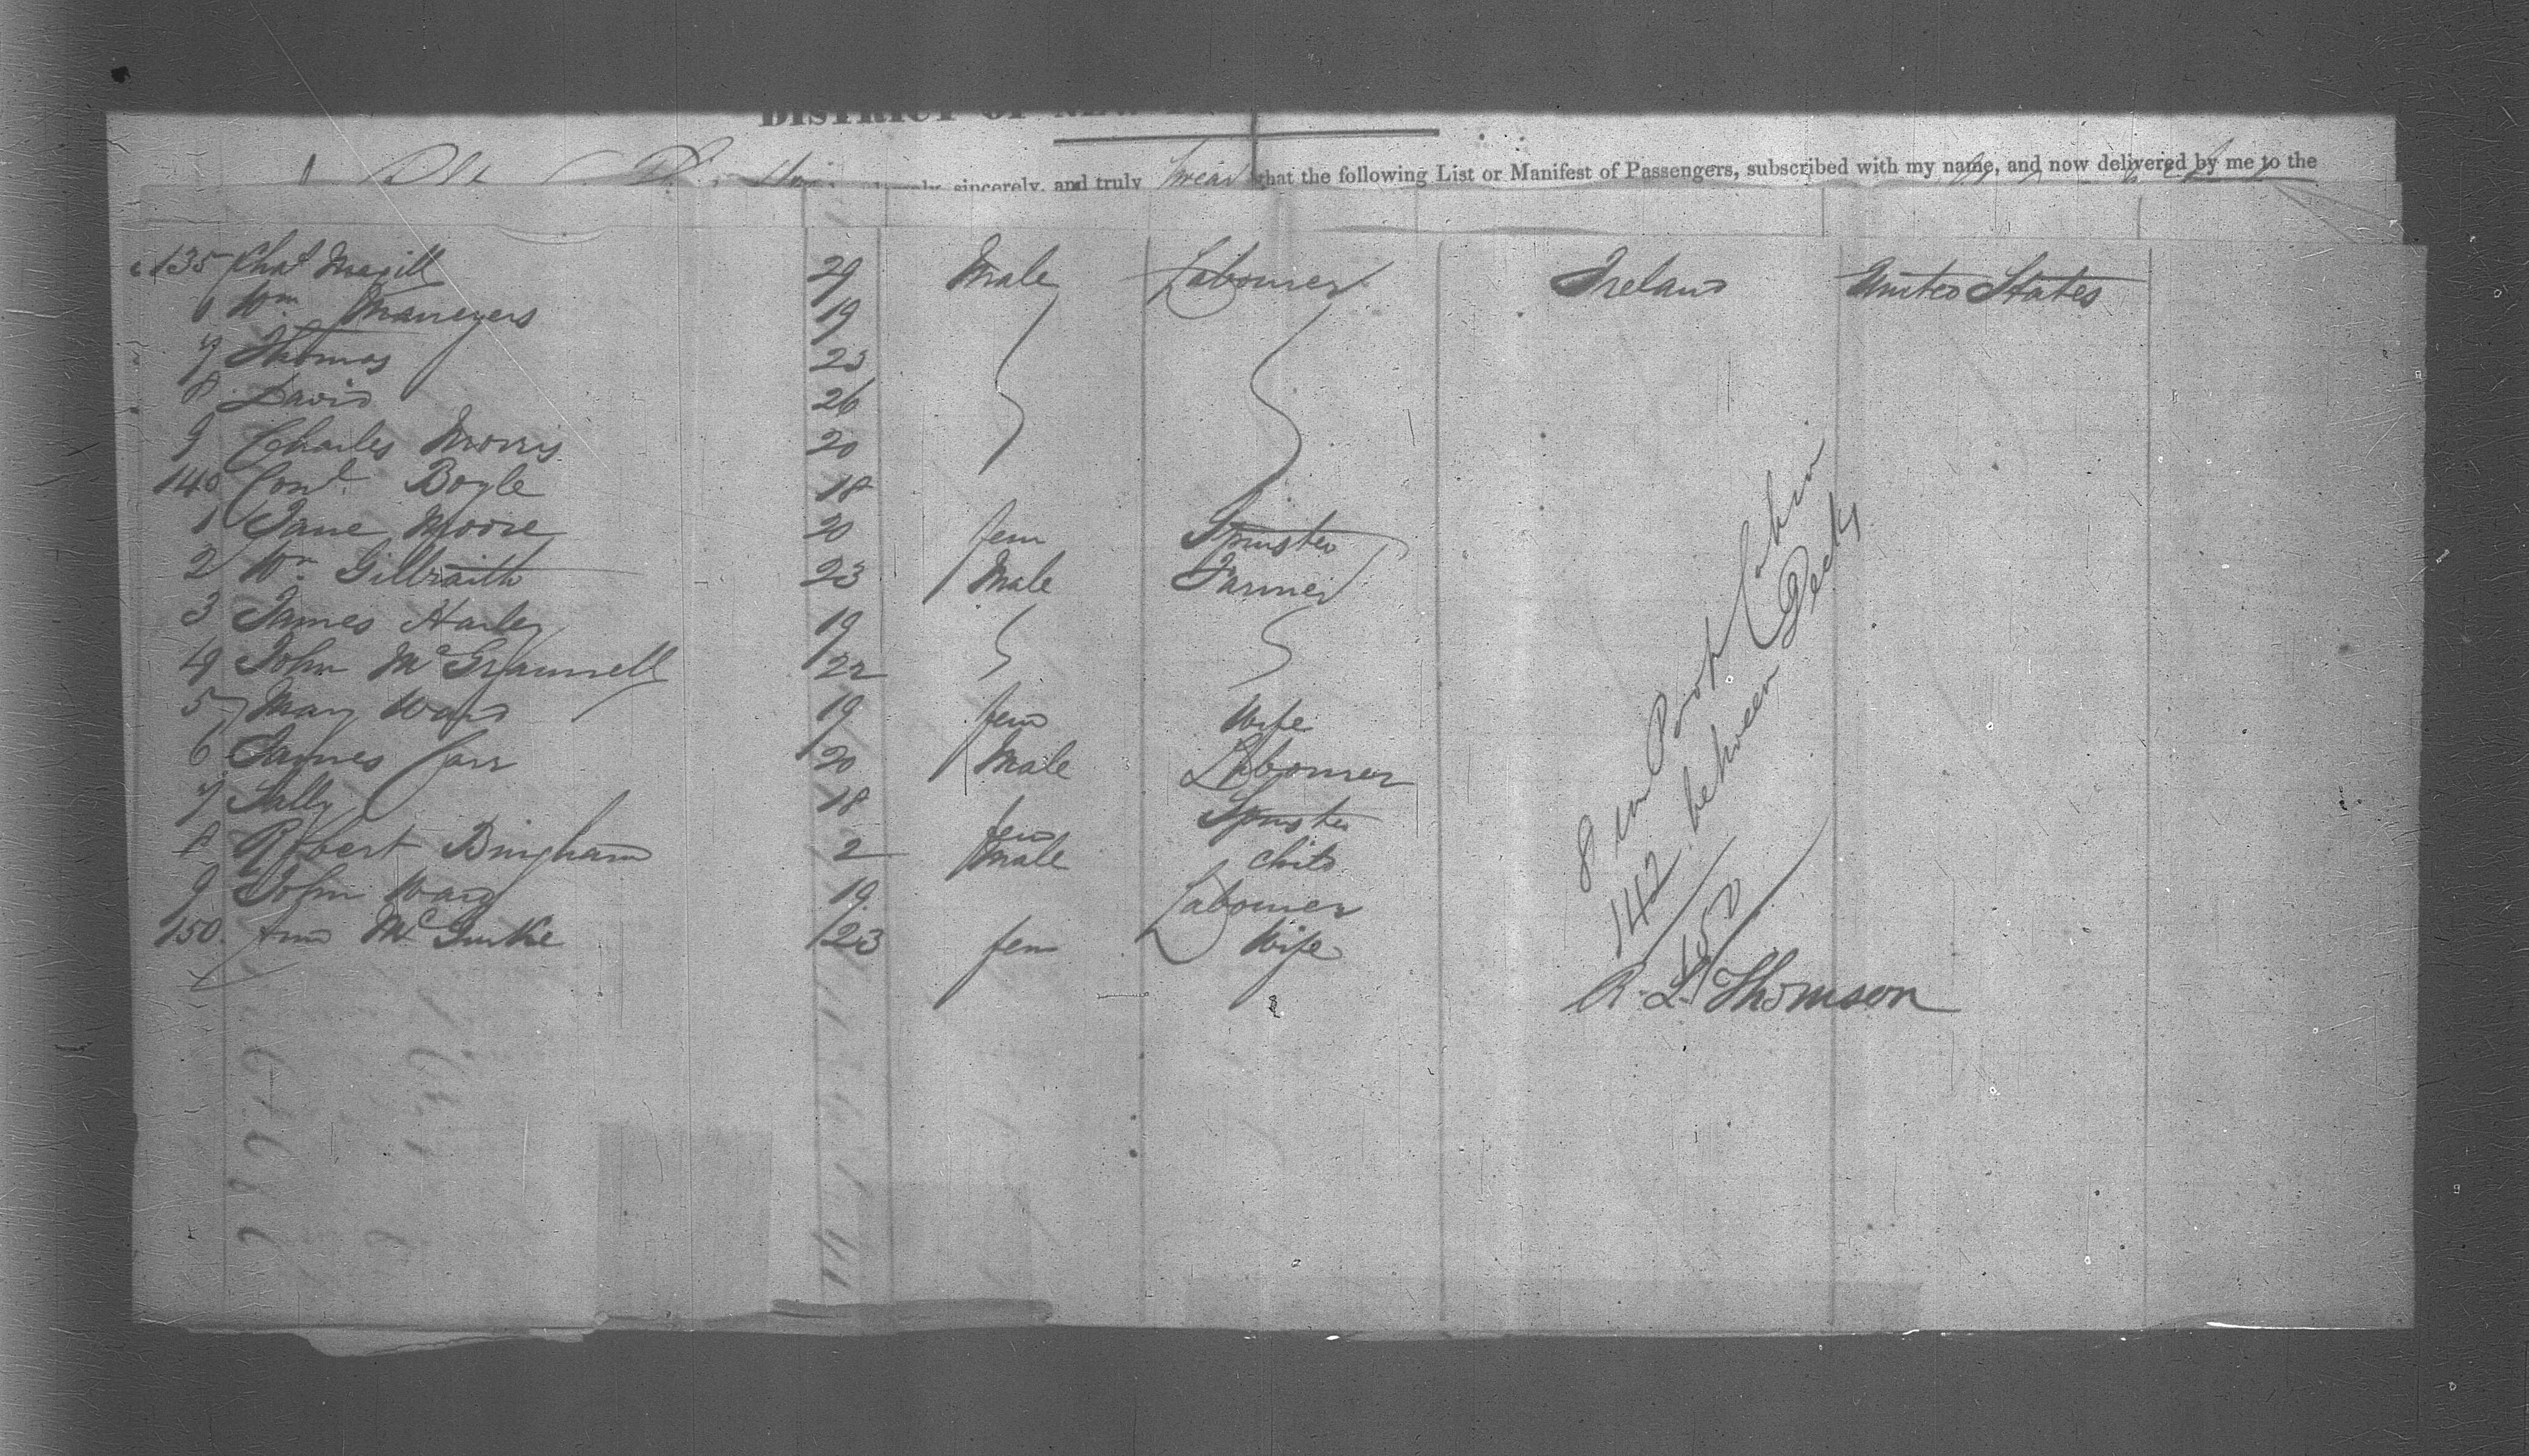 DISTRICT OF NEW
sincerely, and truly swear that the following List or Manifest of Passengers, subscribed with my name, and now delivered by me to the
135 Chas Magill 29 Male Labourer Ireland United States
6 Wm 19
7 Thomas 23
8 David 26
9 Charles Morris 20
140 Cond. Boyle 18
1 Jane Moore 20 fem Spinster
2 Wm Gilbraith 23 Male Farmer
3 James Harley 19
4 John Mc 22
5 Mary Ward 19 fem Wife
6 James Carr 20 Male Labourer
7 Sally 18 fem Spinster
8 Robert Bingham 2 Male child
9 John Ward 19 Labourer
150 Ann McGurke 23 fem Wife
8 in Poop Cabin
142 between Decks
150
R. L. Thomson